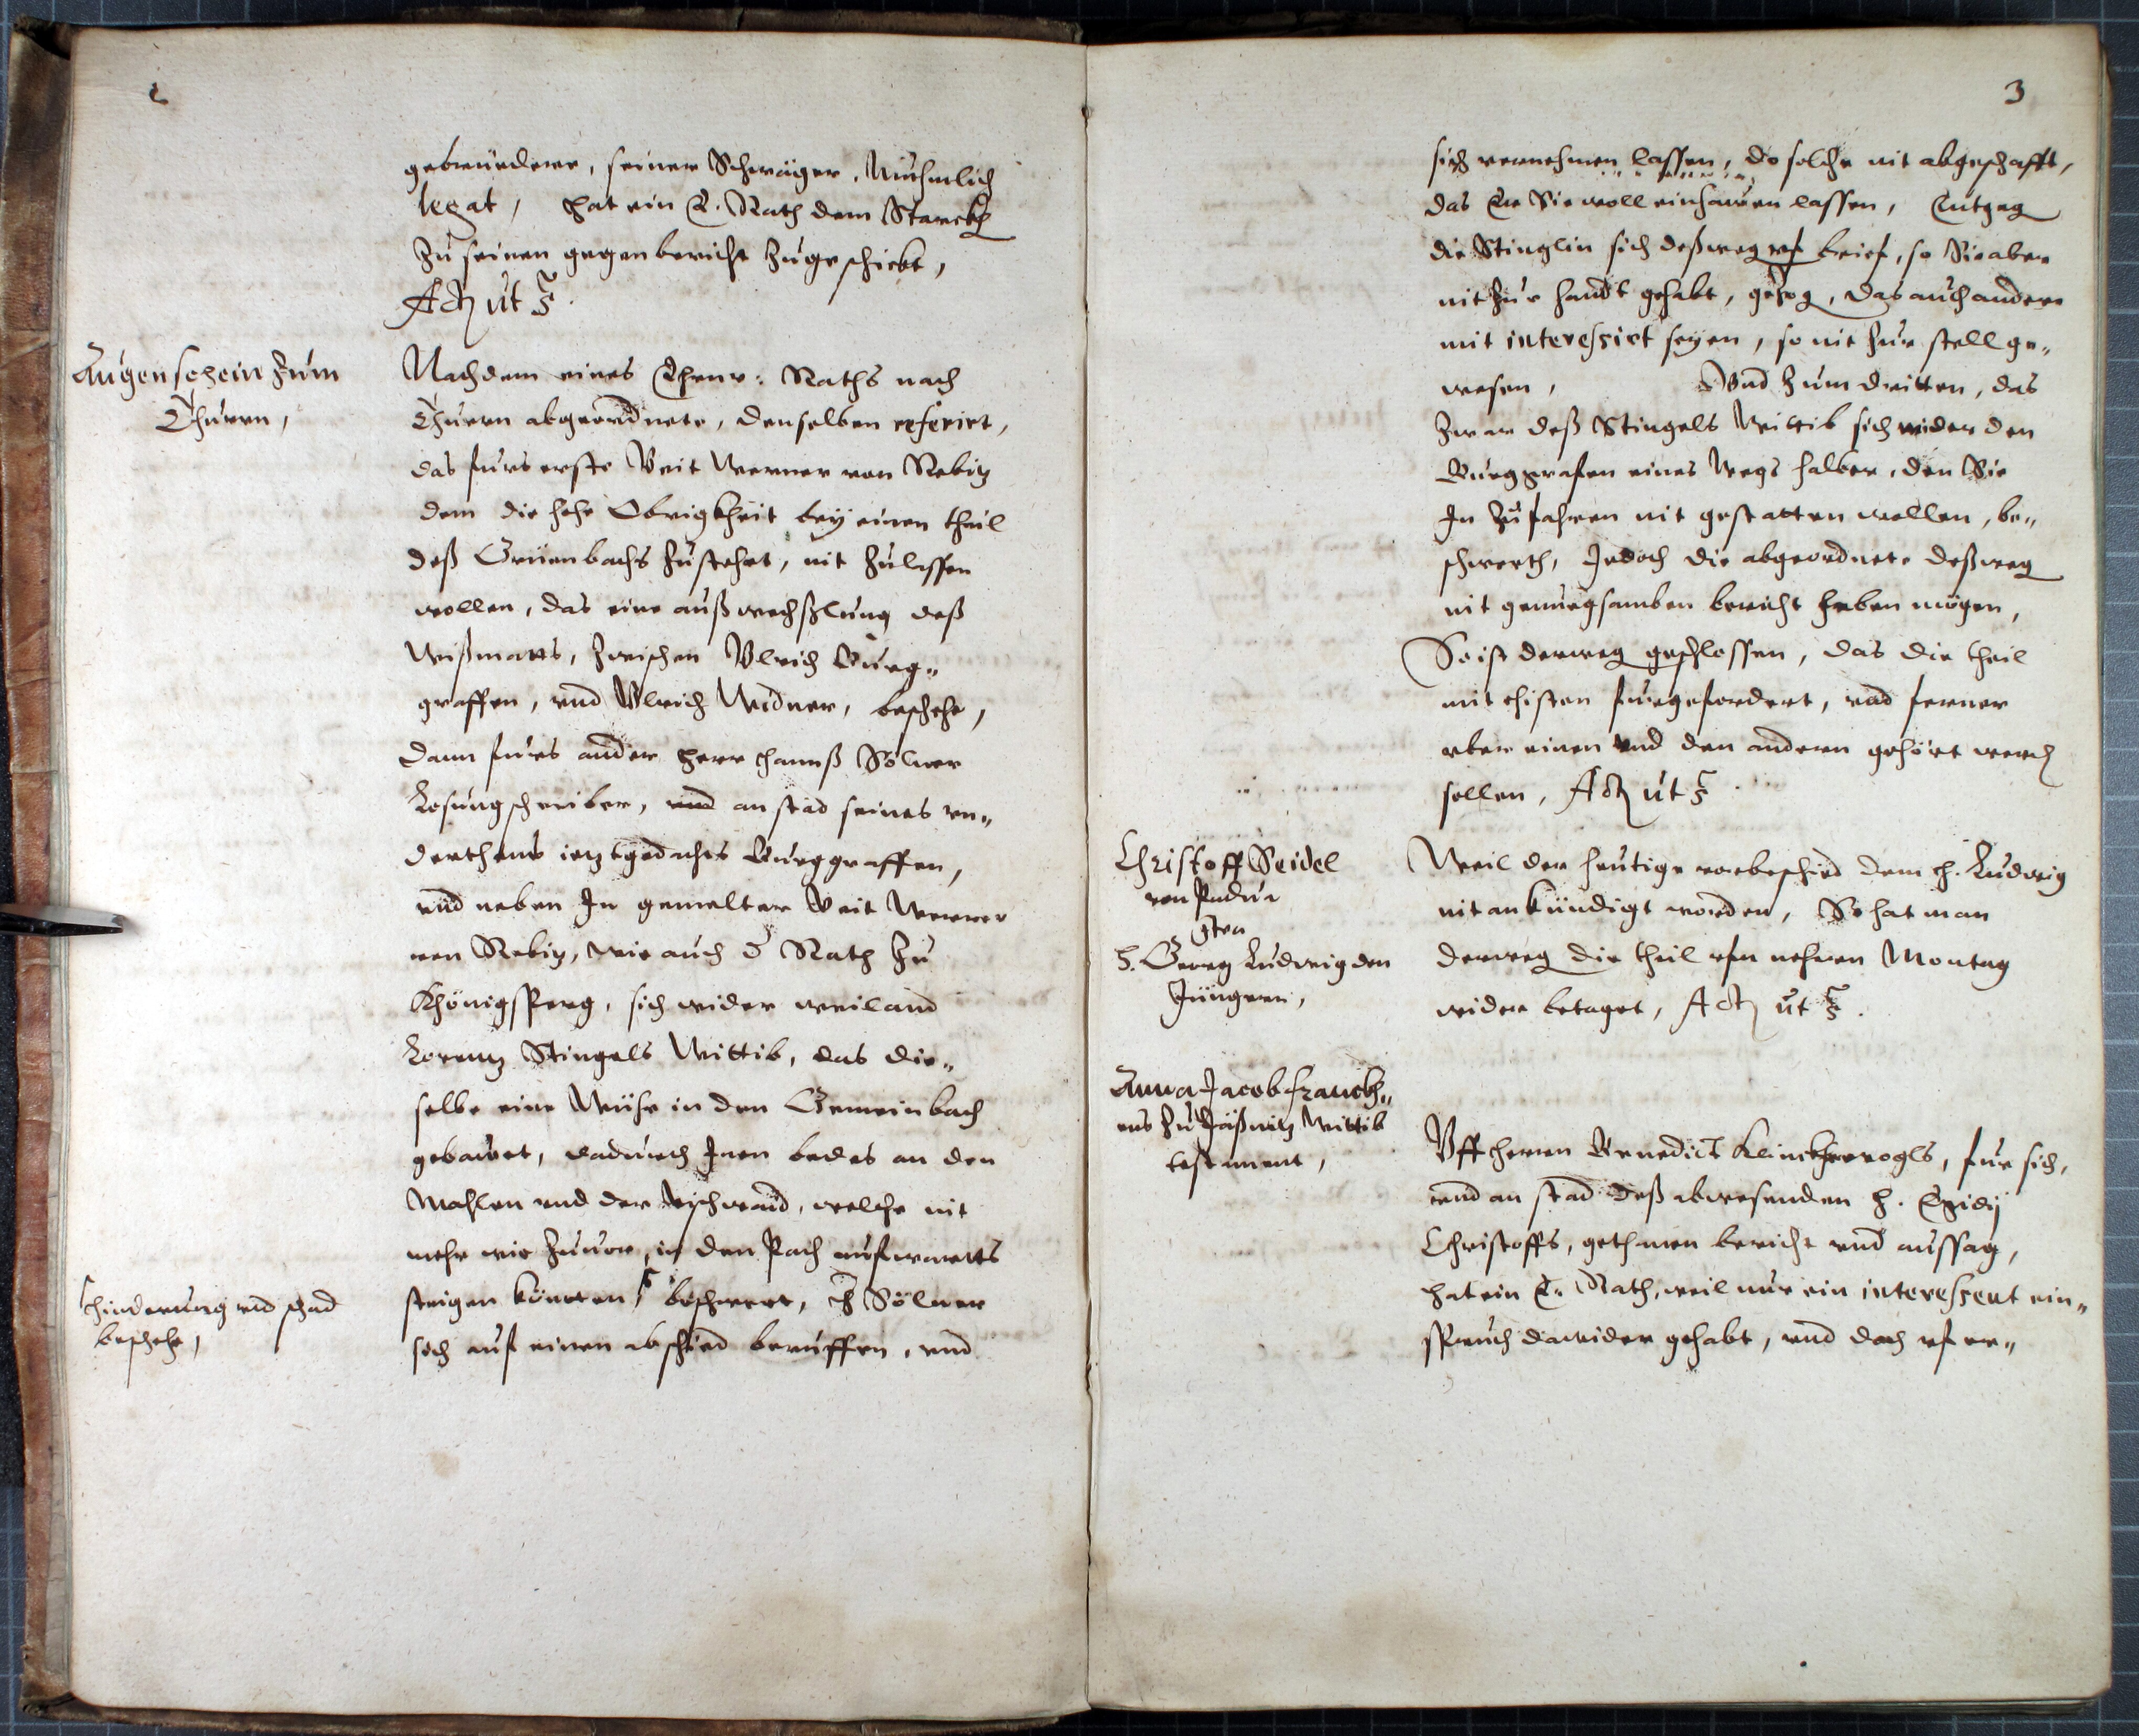 2
gebruederr, seiner Schwäger, Mühmlich
legat, hat ein E. Rath dem Starckh
Zu seinen gegenbericht Zugeschickt,
Act ut s.
Augenschein Zum
Thurrn,
Nachdem eines Ehrnv: Raths nach
Thurrn abgeordnete, denselben referirt,
das furs erste Veit Werner von Rebitz
dem die hohe Obrigkheit bey einen theil
deß Gruenbachs Zustehet, nit Zulassen
wollen, das eine außwechßlung deß
Wißmatts, Zwischen Ulrich Burg„
graffen, und Ulrich Widner, beschehe,
Dann furs ander herr hannß Sölner
Losungschreiber, und anstad seines un„
derthans ietztgedachts Burggraffen,
und neben In gemelter Veit Werner
von Rebitz, wie auch d Rath Zu
Khönigsperg, sich wider weiland
Lorentz Stingels Wittib, das die„
selbe eine Wühr in den Gemeinbach
gebawet, dadurch Inen bedes an den
Mahlen und der vischwaid, welche nit
mehr wie Zuvor, in den Pach aufwartts
steigen könten, beschwert, h Sölner
hinderung und schad
beschehe,
sich auf einen abschied beruffen, und
3
sich vernehmen lassen, do solche nit abgeschafft,
das Er Sie woll einhawen lassen, Entgeg
die Stinglin sich deßweg uf brief, so Sie aber
nit Zur handt gehabt, gezog, das auch andere
mit interessirt seyen, so nit Zur stell ge„
wesen, Und Zum dritten, das
Zwar deß Stingels Wittib sich wider den
Burggrafen eines Wegs halber, den Sie
In Zufahren nit gestatten wollen, be„
schwerth, Jedoch die abgeordnete deßweg
nit genuegsamben bericht haben mögen,
So ist derweg geschlossen, das die theil
mit ehisten furgefordert, und ferner
uber einen und den andern gehört werd
sollen, Act ut s.
Christoff Seidel
von Padua
gten
H. Georg Ludwig den
Jüngern,
Weil der heutige vorbeschied dem h. Ludwig
nit ankündigt worden, So hat man
derweg die theil ufm nehern Montag
wider betaget, Act ut s.
Anna Jacob franckh„
ens Zu Wittib
testament,
Uff herrn Benedict Klinckhervogls, fur sich,
und an stad deß abwesenden H. Egidij
Christoffs, gethanen bericht und aussag,
hat ein E. Rath, weil nur ein interessent ein„
spruch dawider gehabt, und doch uf er„